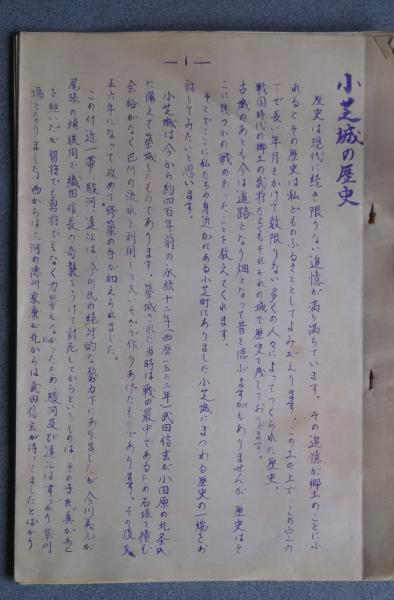 －1－
小芝城の歴史
歴史は現代に続き限りない追憶が満ち満ちています。その追憶が郷土のことにふ
れるとその歴史は私どものふるさととしてよみがえります。この土の上で、この空の
下で長い年月をかけて数限りない多くの人々によってつくられた歴史。
戦国時代の郷土の武将たちもそれぞれの城で歴史を残しております。
古城のあとも今は道路となり畑となって昔を偲ぶすがもありませんが、歴史はそ
こに幾つかの戦のあったことを教えてくれます。
そこでここに私たちの身近かにある小芝町にありました小芝城にまつわる歴史の一端をお
話してみたいと思います。
小芝城は今から約四百年前の永禄十二年(西歴一五六九年)武田信玄が小田原の北条氏
に備えて築城したものであります。築城された当時は戦の最中であるため石垣を積む
余裕がなく巴川の流水を利用して大いそぎで作りあげたものであります。その後天
正六年になって改めて修築の手が加えられました。
この付近一帯、駿河、遠江は、今川氏の絶対的な勢力下にありましたが、今川義元が
尾張の桶狭間で織田信長の奇襲をうけて討死してからというものは、その子氏真があと
を継いだが智将でも勇将でもなく力弱もなかったため駿河及び遠江はすっかり草刈
場となりました。西からは三河の徳川家康が、北からは武田信玄が待ってましたとばかり